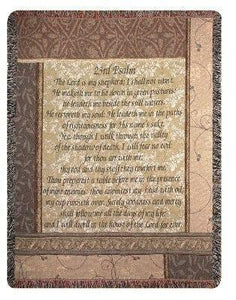 23rd Psalm
The Lord is my shepherd; I shall not want.
He maketh me to lie down in green pastures;
he leadeth me beside the still waters.
He restoreth my soul: He leadeth me in the paths
of righteousness for His name's sake.
Yea, though I walk through the valley
of the shadow of death, I will fear no evil
for thou art with me;
thy rod and thy staff they comfort me.
Thou preparest a table before me in the presence
of mine enemies; thou annointest my head with oil
my cup runneth over. Surely goodness and mercy
shall follow me all the days of my life;
and I will dwell in the House of the Lord for ever.